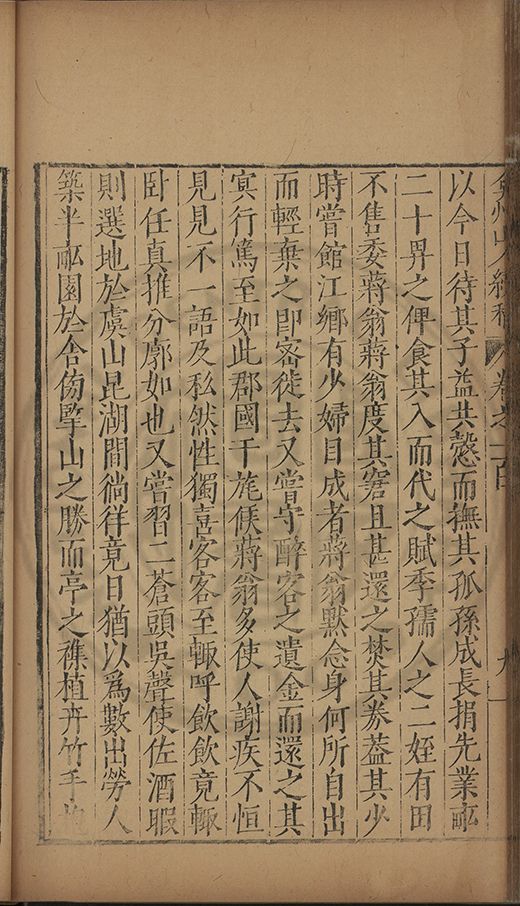 弇州山人續稿 卷之一百 九
以今日待其子益共愨而撫其孤孫成長捐先業畝
二十畀之俾食其入而代之賦季孺人之二姪有田
不售委蔣翁蔣翁度其窘且甚還之焚其券蓋其少
時嘗館江鄉有少婦目成者蔣翁默念身何所自出
而輕棄之即密徙去又嘗守醉客之遺金而還之其
㝠行篤至如此郡國干旄俟蔣翁多使人謝疾不恒
見見不一語及私然性獨喜客客至輙呼飲飲竟輙
卧任真推分廓如也又嘗習二蒼頭吳聲使佐酒暇
則選地於虞山昆湖間徜徉竟日猶以為數出勞人
築半畝園於舍傍擥山之勝而亭之襍植卉竹手